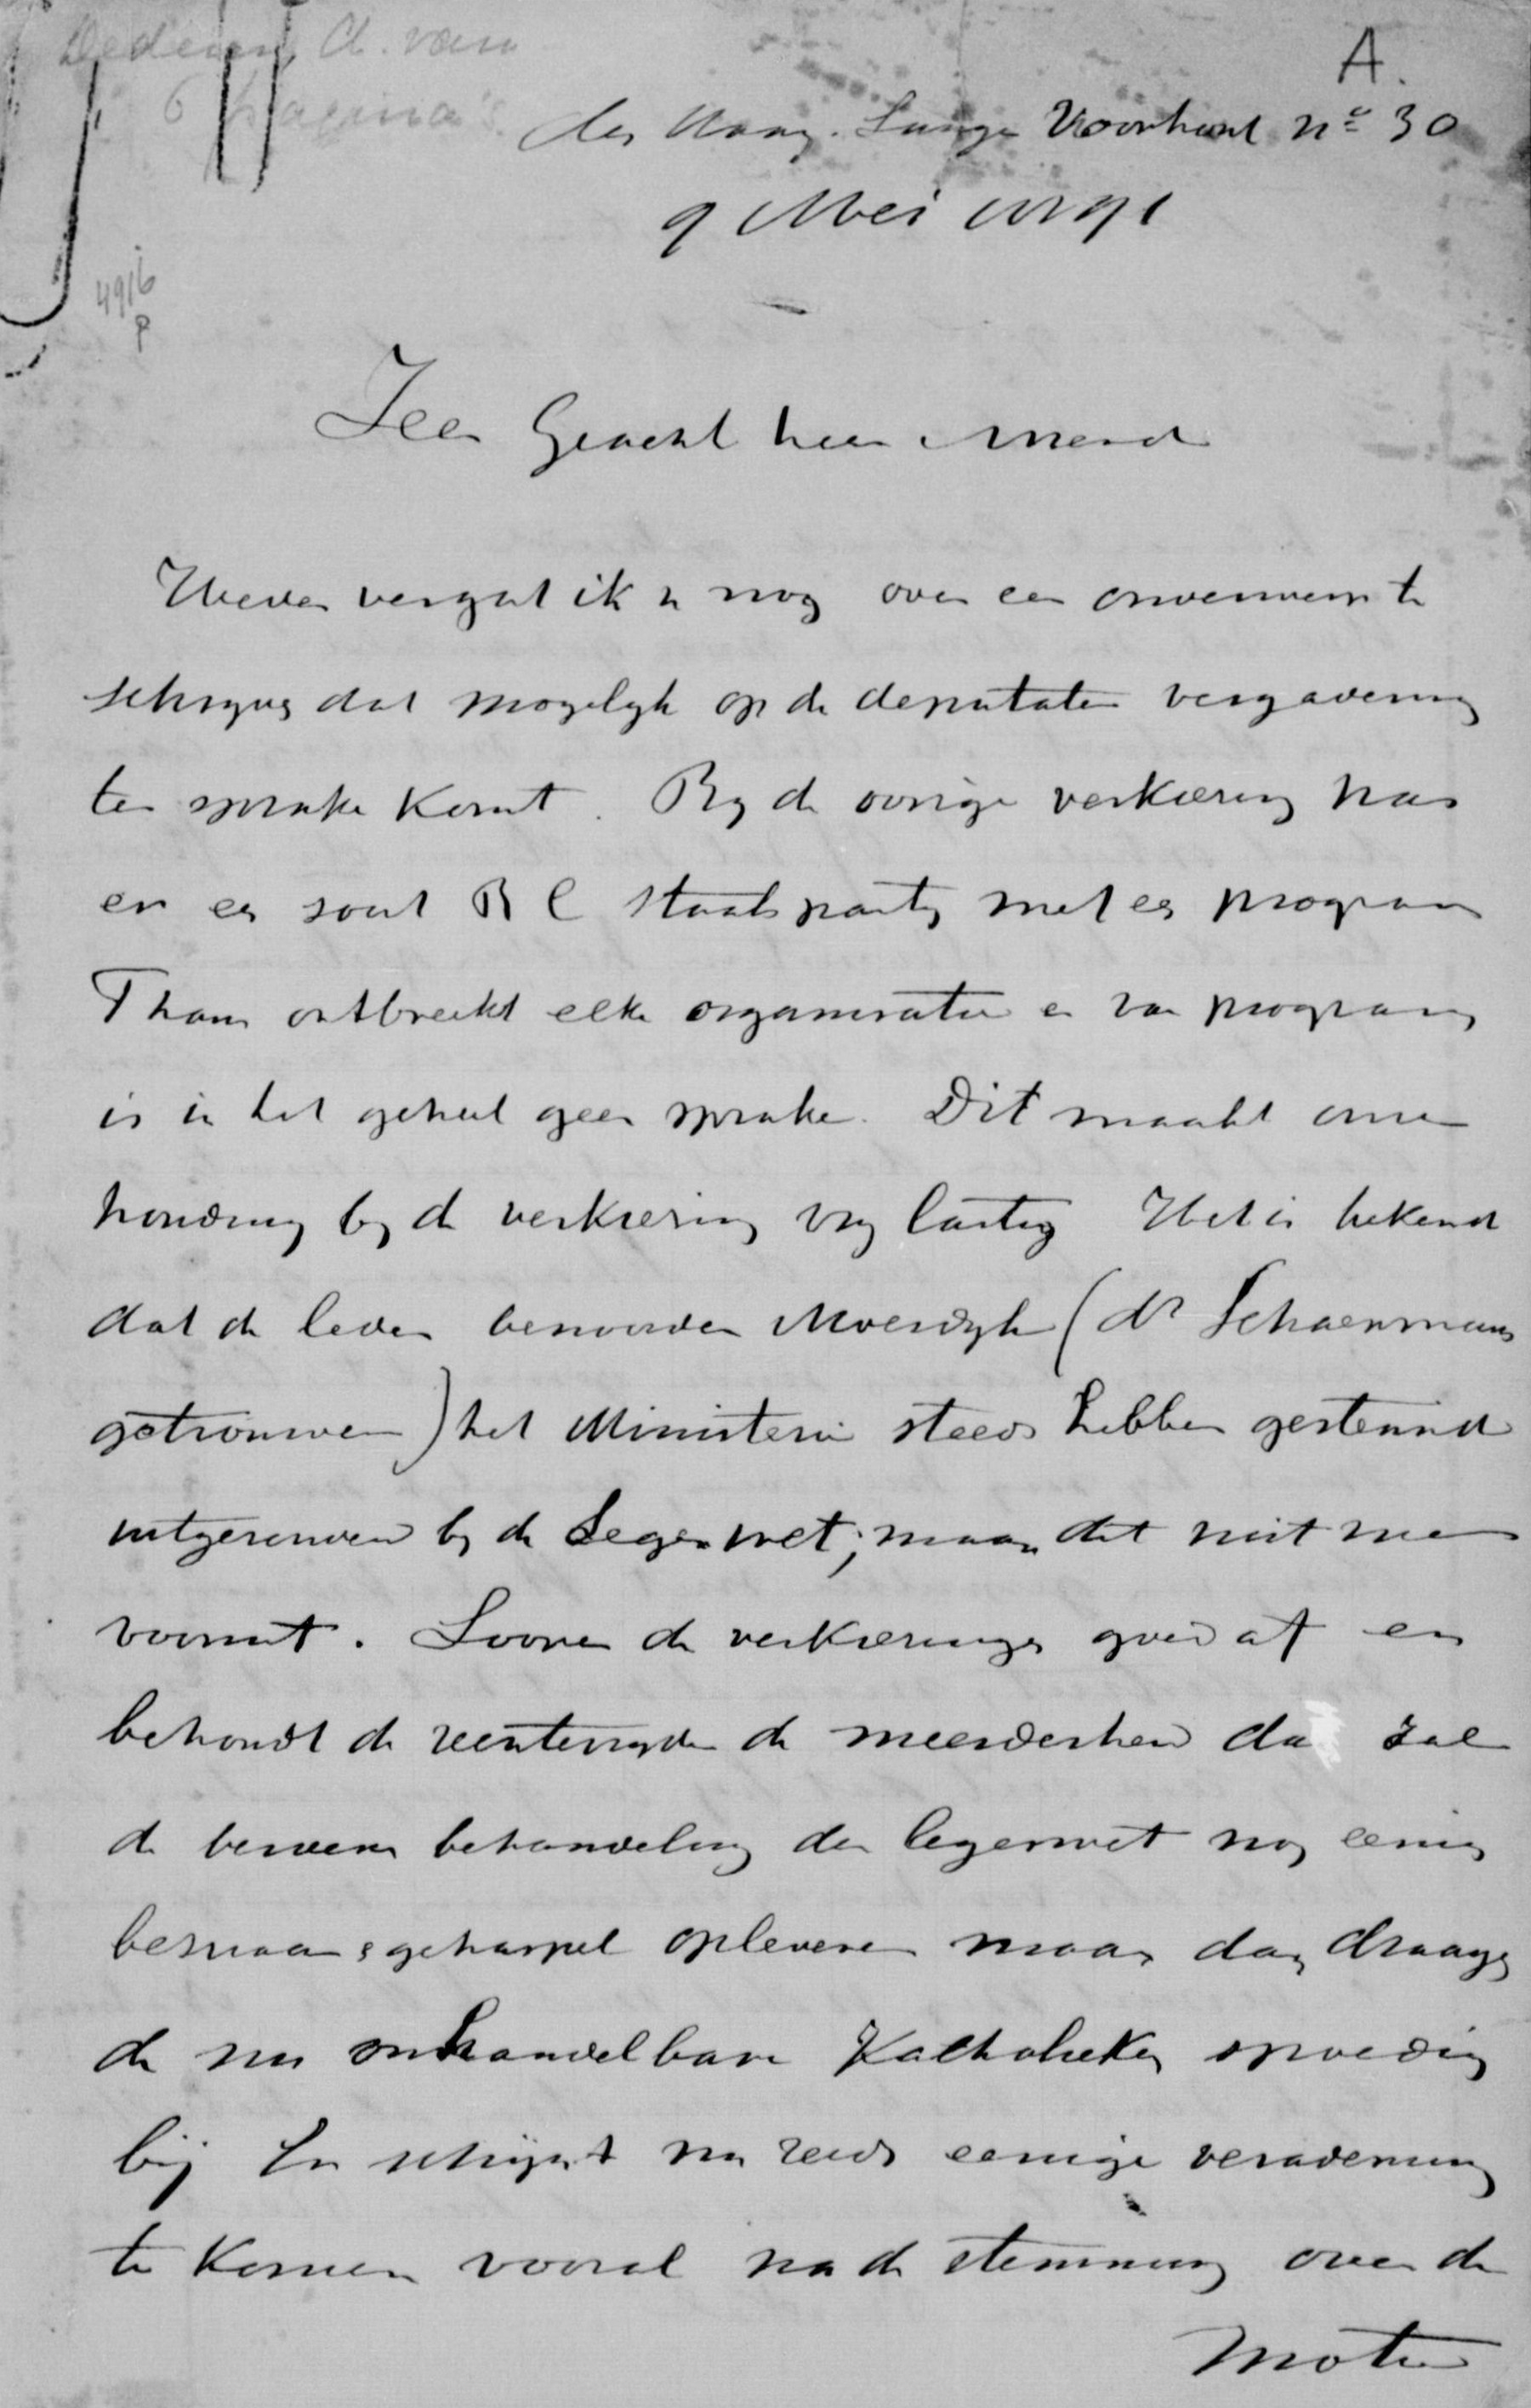 Dedem, A. van
6 pagina's
A.
den Haag. Lange Voorhout no 30
9 Mei 1891
4916
P
Zeer Geacht heer en vriend
Heden vergat ik u nog over een onderwerp te
schrijven dat mogelijk op de deputaten vergadering
ter sprake komt. By de vorige verkiezing was
er een soort R C staatsparty met een program
Thans ontbreekt elke organisatie en van program
is in het geheel geen sprake. Dit maakt onze
houding by de verkiezing vry lastig Het is bekend
dat de leden benoorden Moerdyk (dr Schaepmans
getrouwen) het Ministerie steeds hebben gesteund
uitgezonden by de Legerwet; maar dit niet meer
vooruit. Loopen de verkiezingen goed af en
behoudt de rechterzyde de meerderheid dan zal
de behandeling der legerwet nog eenig
gehaspel opleveren maar dan draagen
de nu onhandelbare Katholieken spoedig
bij Er schijnt nu reeds eenige verademing
te komen vooral na de stemming over de
motie